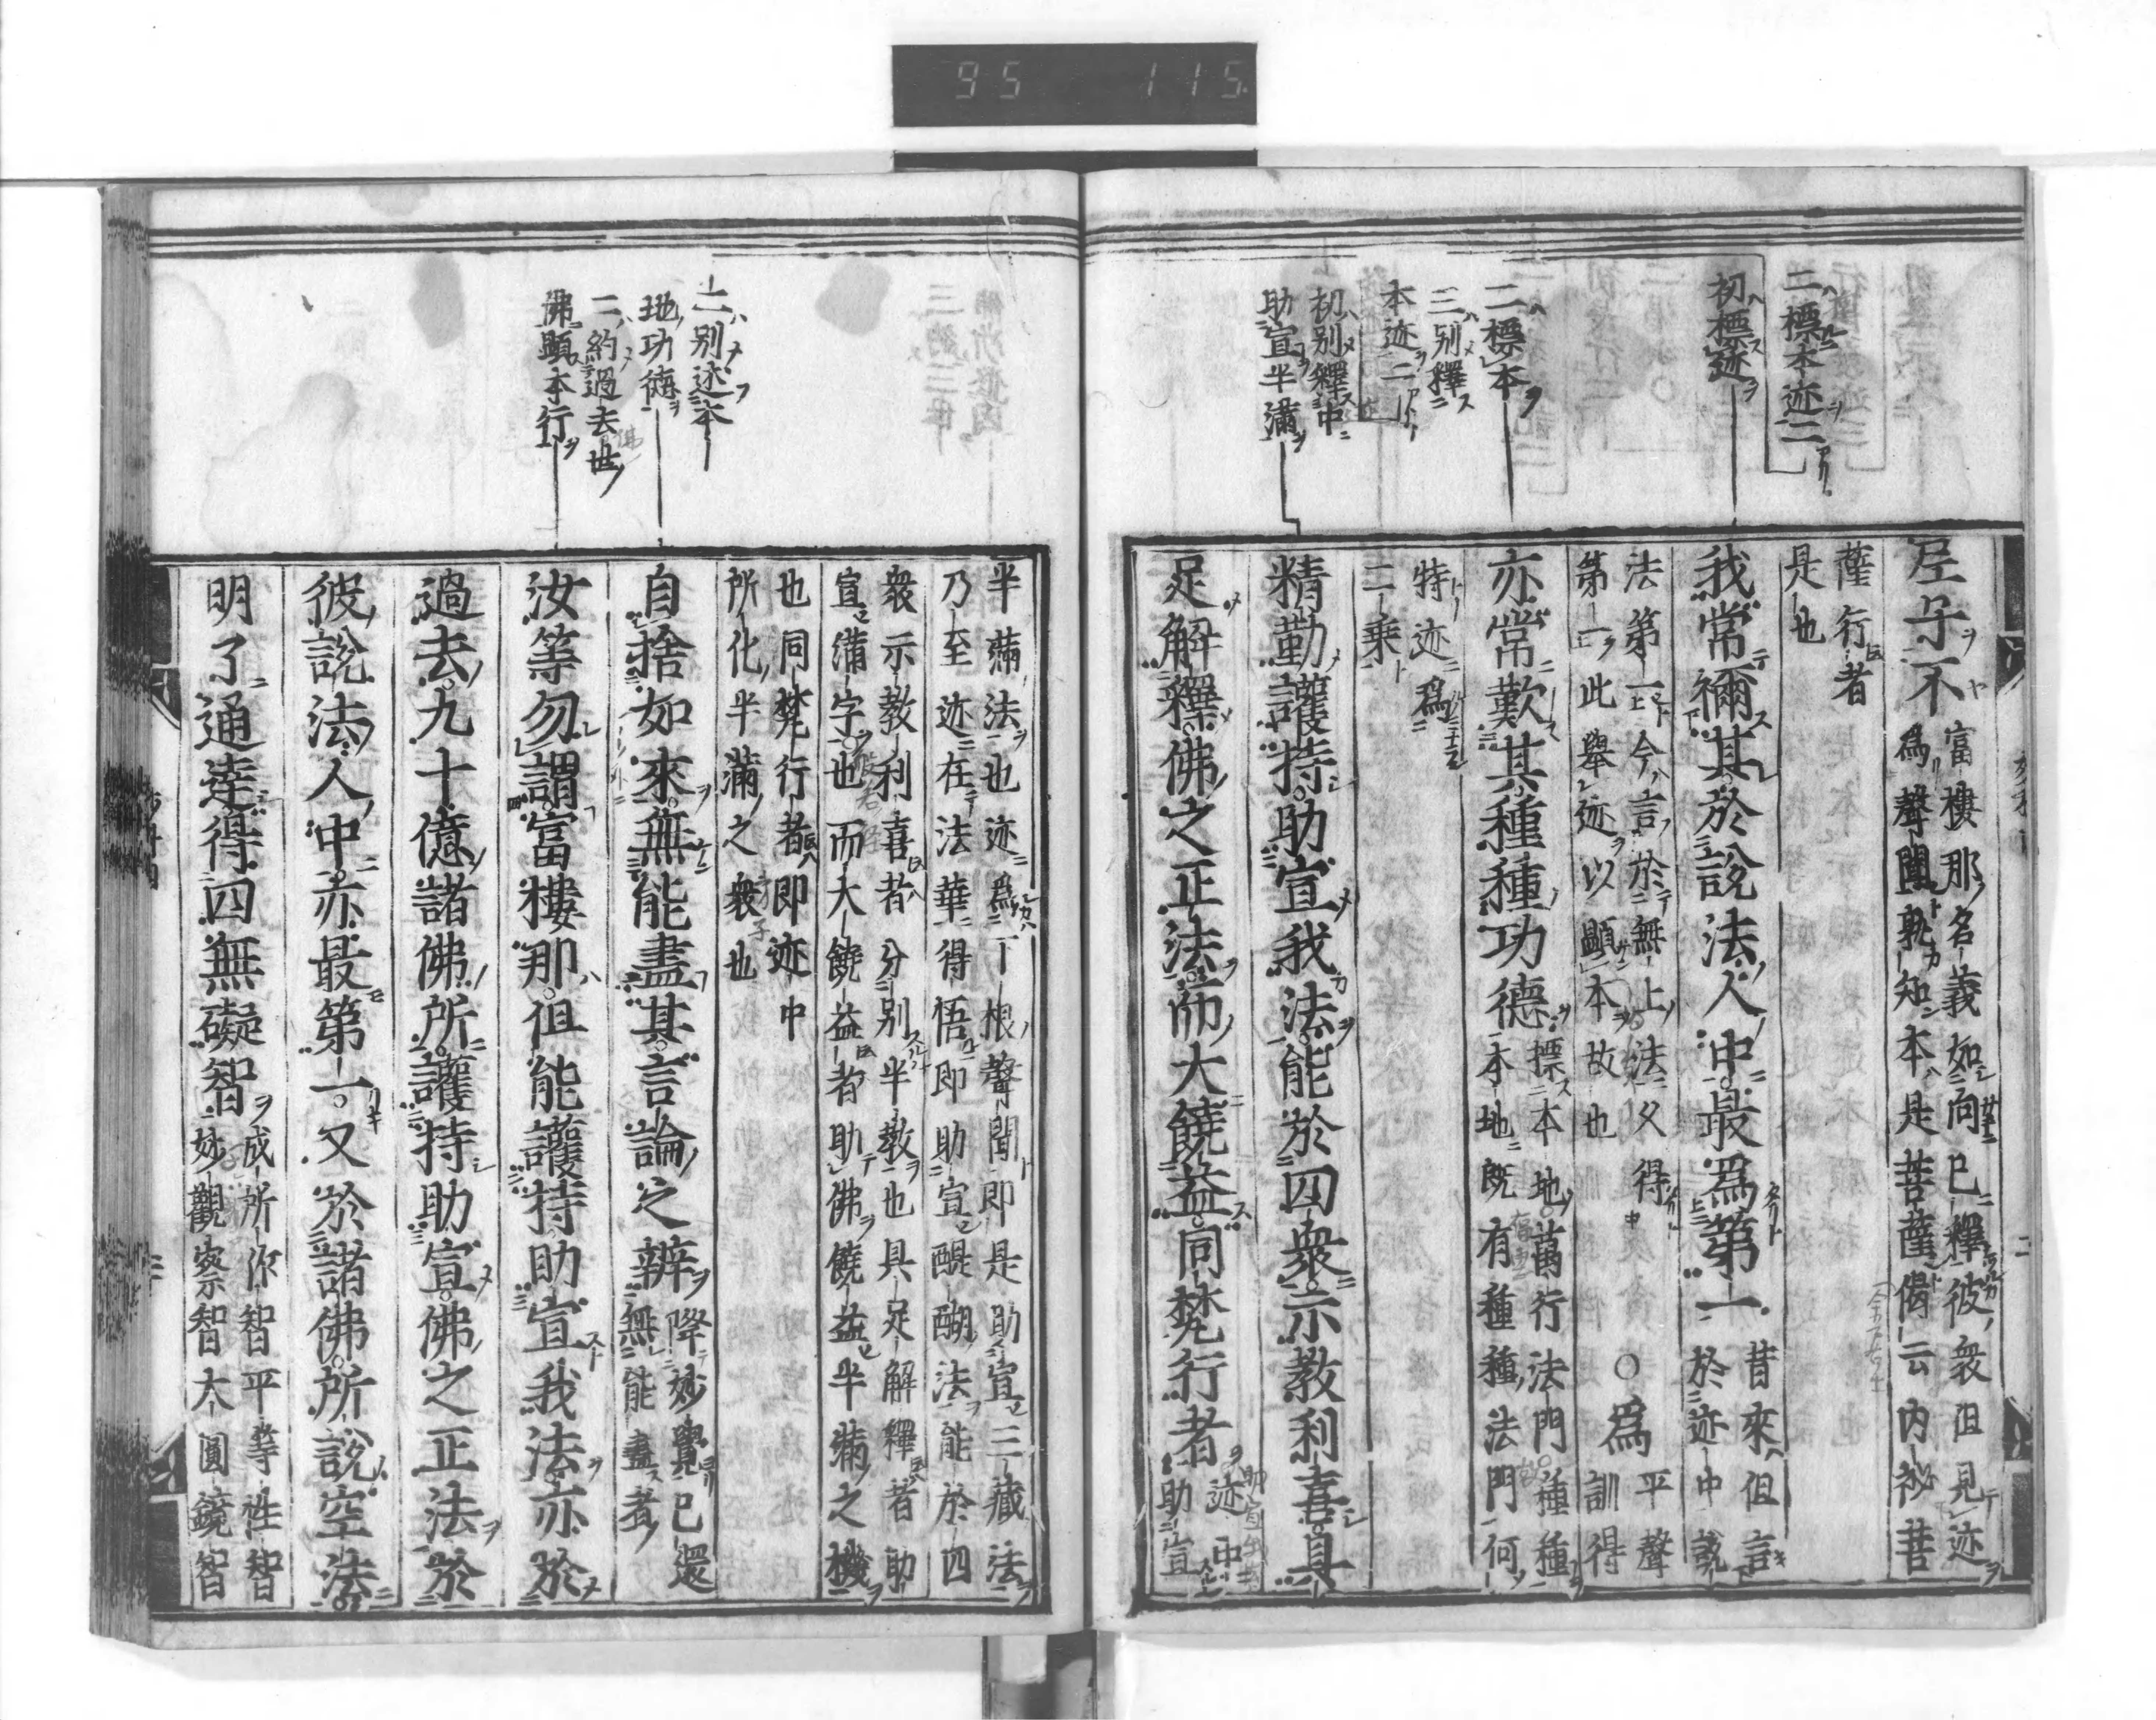 95 115
二標本迹二
初標迹
二標本
三別釋
本迹二
初別釋中
助宣半滿
尼子不
富樓那名義如向已釋彼衆但見迹
爲聲聞孰知本是菩薩偈云内祕菩
薩行者
是也
我常稱其於說法人中最爲第一
昔來但言
於迹中說
法第一今言於無上法又得
第一此舉迹以顯本故也
○爲
平聲
訓得
亦常歎其種種功德
標本地萬行法門種種
本地既有種種法門何
特迹爲
二乘
精勤護持助宣我法能於四衆示教利喜具
足解釋佛之正法而大饒益同梵行者
迹中
助宣
二別述本
地功德
二約過去世
佛顯本行
半滿法也迹爲下根聲聞即是助宣三藏法
乃至迹在法華得悟即助宣醍醐法能於四
衆示教利喜者分別半教也具足解釋者助
宣滿字也而大饒益者助佛饒益半滿之機
也同梵行者即迹中
所化半滿之衆也
自捨如來無能盡其言論之辯
降妙覺已還
無能盡者
汝等勿謂富樓那但能護持助宣我法亦於
過去九十億諸佛所護持助宣佛之正法於
彼說法人中亦最第一又於諸佛所說空法
明了通達得四無礙智
成所作智平等性智
妙觀察智大圓鏡智